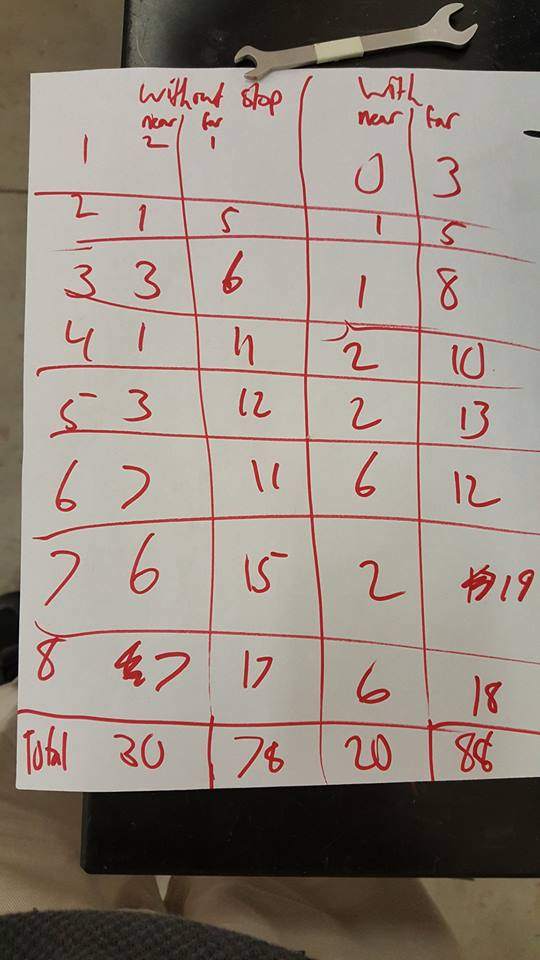 without stop with
near far near far
1 2 1 0 3
2 1 5 1 5
3 3 6 1 8
4 1 11 2 10
5 3 12 2 13
6 7 11 6 12
7 6 15 2 19
8 7 17 6 18
Total 30 78 20 88